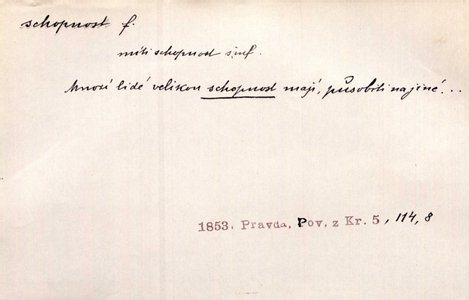 schopnost f.
míti schopnost s inf.
Mnozí lidé velikou schopnost mají, působiti na jiné...
1853. Pravda, Pov. z Kr. 5, 114, 8